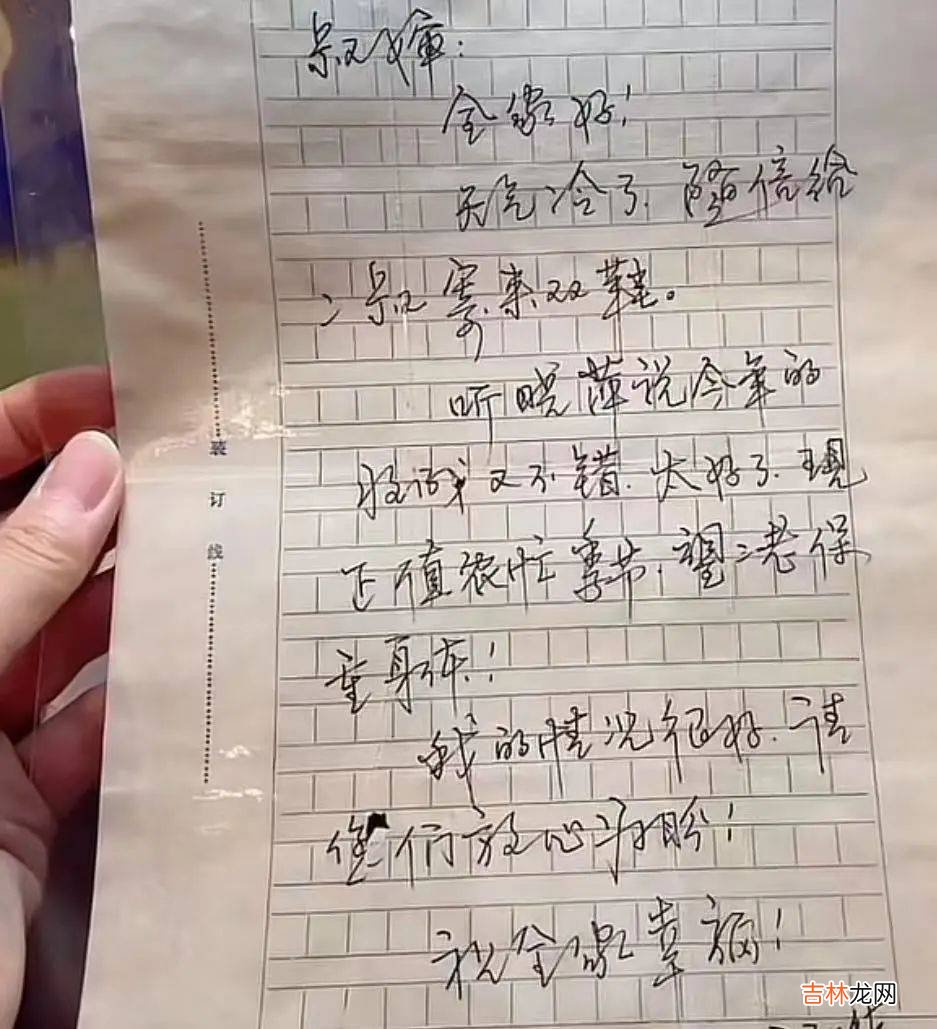 叔婶:
全家好!
天气冷了.随信给
二叔寄来双鞋。
听晓萍说今年的
收成又不错.太好了.现
正值农忙季节.望二老保
重身体!
我的情况很好.请
您们放心别盼!
祝全家幸福!
装订线
吉林龙网